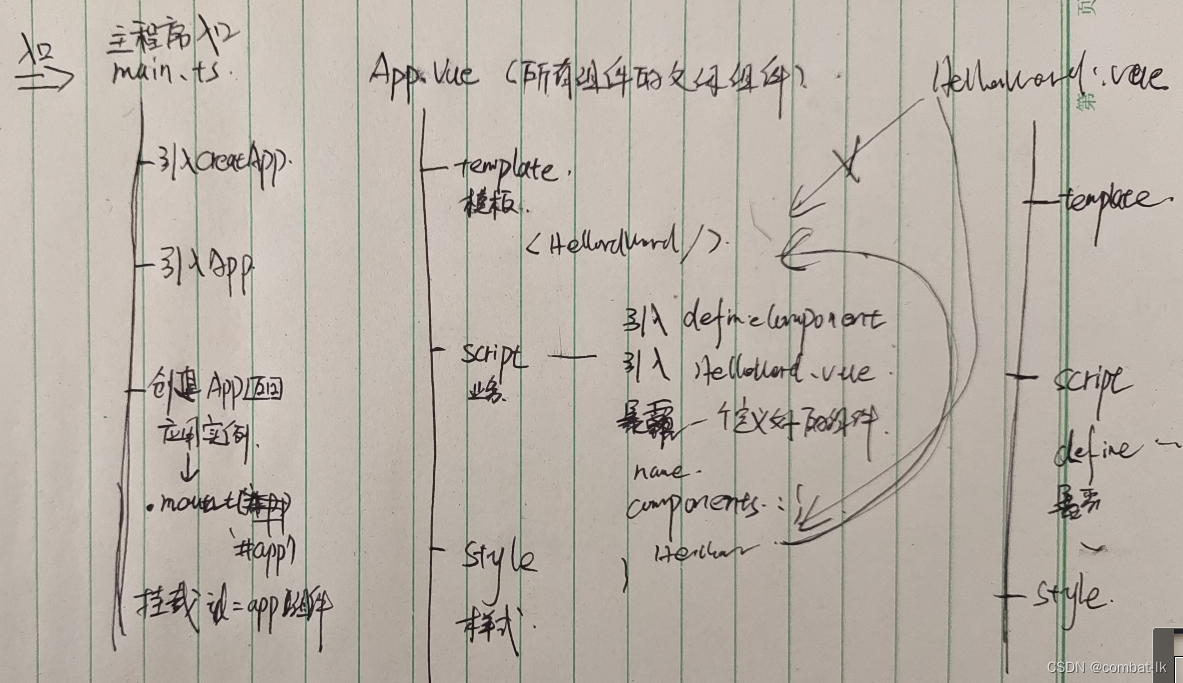 入口
主程序入口
main.ts.
引入CreatApp.
引入App
创建App
应用实例.
.mount(
'#app')
挂载 id=app 组件
App.Vue (所有组件的父母组件).
template.
模板.
<HellordWord/>.
script
业务.
引入 defineComponent
引入 HelloWord.vue.
暴露一个定义好的组件.
name.
components:{
}
style
样式.
HelloWord.vue
template.
script
define
暴露
style.
页
第
CSDN @combat-lk